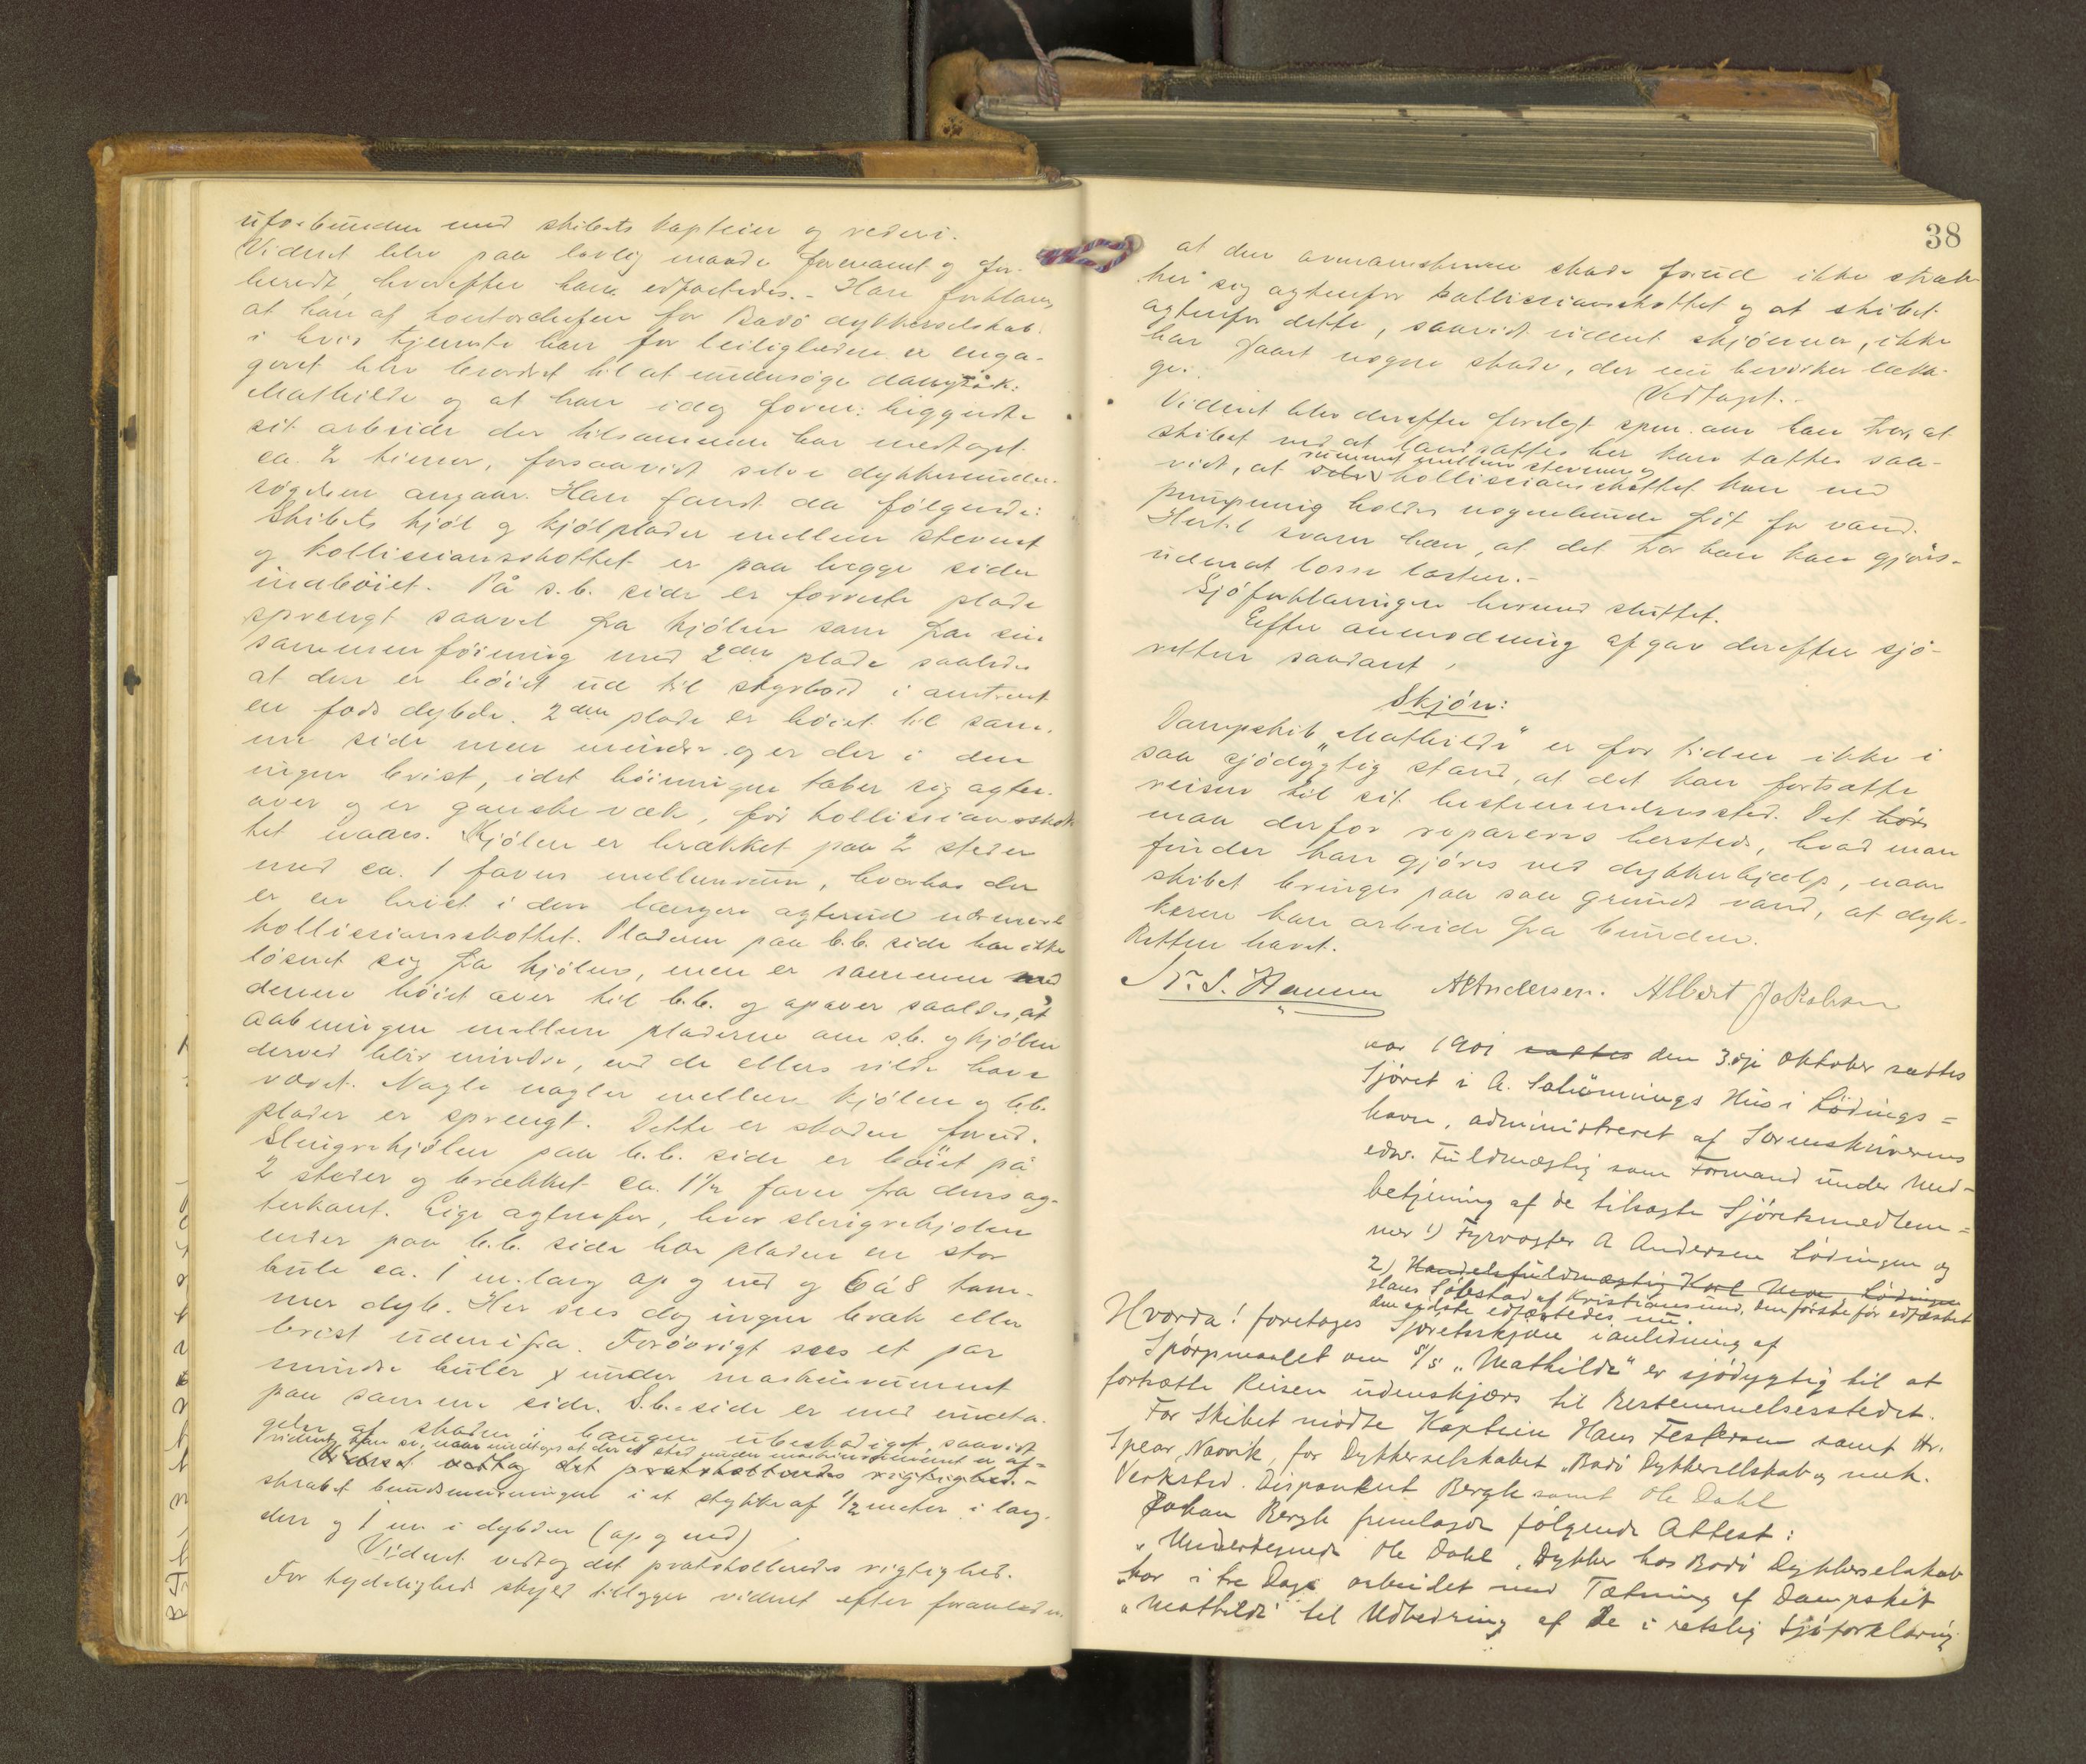 uforbunden med skibets kaptein og rederi.
Vidnet blev paa lovlig maade formanet og for-
beredt, hvorefter han edfæstedes. - Han forklarer
at han af kontorchefen for Bodö dykkerselskab
i hvis tjeneste han for leiligheden er enga-
geret blev beordret til at undersöge dampsk.
Mathilde og at han idag foren:
sit arbeide der tilsammen har medtaget
ca. 2 timer, forsaavidt selve dykkerunder-
sögelsen angaar. Han fandt da fölgende:
Skibets kjöl og kjölplader mellem stevnet
og kollisionsskottet er paa begge sider
indböiet. På s.b. side er forreste plade
sprengt saavel fra kjölen som fra sin
sammenföining med 2den plade saaledes
at den er böiet ud til styrbord i omtrent
en fods dybde. 2den plade er böiet til sam-
me side men mindre og er der i den
ingen brist, idet böiningen taber sig agter-
over og er ganske væk, för kollisionsskot-
tet naaes. Kjölen er brækket paa 2 steder
med ca. 1 favns mellemrum, hvorhos der
er en brist i den længere agterud
kollisionsskottet. Pladerne paa b.b. side har ikke
lösnet sig fra kjölen, men er sammen med
denne böiet over til b.b. og opover saaledes, at
aabningen mellem pladerne om s.b. og kjölen
derved bliv mindre, end de ellers vilde have
været. Nogle nagler mellem kjölen og b.b.
plader er sprengt. Dette er skaden forud.
Slingrekjölen paa b.b. side er böiet på
2 steder og brækket ca. 1½ favn fra dens ag-
terkant. Lige agtenfor, hvor slingrekjölen
ender paa b.b. side har pladen en stor
bule ca. 1 m. lang op og ned og 6 á 8 tom-
mer dyb. Her sees dog ingen bræk eller
brist udenifra. Forövrigt sees et par
mindre buler under maskinrummet
paa samme side. S.b. side er med undta-
gelse af skaden i baugen ubeskadiget, saavidt
vidnet kan se, naar undtages at der et sted under maskinrummet er af-
Vidnet vedtog det protokolleredes rigtighed. -
skrabet bundsmurningen i et stykke af ½ meter i læng-
den og 1 m i dybden (op og ned)
Vidnet vedtog det protokolleredes rigtighed.
For tydelighedsskyld tillægger vidnet efter foranledn.
38
at den ovenanförte skade forud ikke stræk-
ker sig agtenfor kollisionsskottet og at skibet
agtenfor dette, saavidt vidnet skjönner, ikke
har faaet nogen skade, der nu bevirker lækka-
ge.
Vedtaget. -
Vidnet blev derefter forelagt spm. om han tror, at
skibet ved at landsættes her kan tættes saa-
rummet mellem stevnen og
vidt, at selve kollisionsskottet kan ved
pumpning holdes nogenlunde frit for vand.
Hertil svarer han, at det tror han kan gjöres
udenat losse lasten. -
Sjöforklaringen hermed sluttet.
Efter anmodning afgav derefter sjö-
retten saadant
Skjön:
Dampskib „Mathilde" er for tiden ikke i
saa sjödygtig stand, at det kan fortsætte
reisen til sit bestemmelsessted. Det bör
maa derfor repareres hersteds, hvad man
finder kan gjöres ved dykkerhjælp, naar
skibet bringes paa saa grundt vand, at dyk-
keren kan arbeide fra bunden.
Retten hævet.
A Andersen. Albert Jakobsen
Aar 1901 sattes den 3die Oktober sattes
Sjöret i A. Schönnings Hus i Lödings=
havn, administreret af Sorenskriverens
edsv. Fuldmægtig som Formand under Med-
betjening af de tilsagte Sjöretsmedlem=
mer 1) Fyrvogter A Andersen Lödingen og
2) Handelsfuldmægtig Karl Moe, Lödingen
Hans Sölestad af Kristiansund, den förste för edfæstet
den sidste edfæstedes nu.
Hvorda! foretoges Sjöretsskjön ianledning af
Spörgsmaalet om S/S „Mathilde" er sjödygtig til at
fortsætte Reisen udenskjærs til Bestemmelsesstedet.
For Skibet mödte Kaptein Hans Festersen samt Hr.
Spear, Narvik, for Dykkerselskabet „Bodö Dykkerselskab og mek.
Verksted. Disponent Bergh samt Ole Dahl
Johan Bergh fremlagde fölgende Attest:
„Undertegnede Ole Dahl, Dykker hos Bodö Dykkerselskab
„har i tre Dage arbeidet med Tætning af Dampskib
„Mathilde" til Udbedring af de i retslig Sjöforklaring